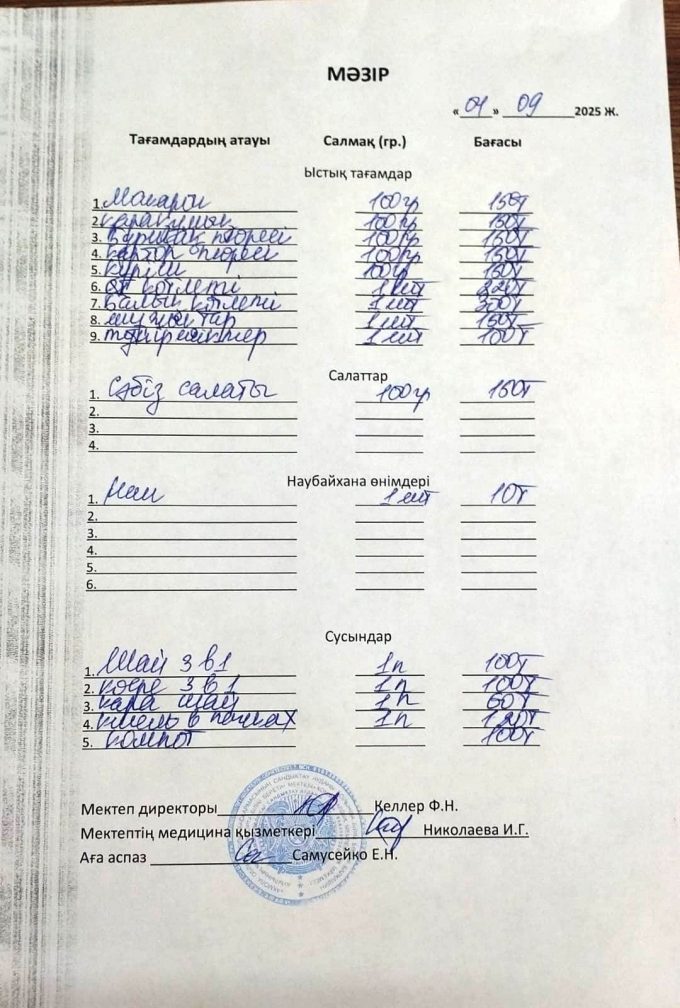 МӘЗІР
« 01 » 09 2025 Ж.
Тағамдардың атауы Салмақ (гр.) Бағасы
Ыстық тағамдар
1. Макарон 100гр 150т
2. қарақұмық 100гр 150т
3. Бұршақ пюреесі 100гр 150т
4. картоп пюресі 100гр 150т
5. күріш 100гр 150т
6. ет котлеті 1 шт 220т
7. балық котлеті 1 шт 350т
8. 1 шт 150т
9. 1 шт 100т
Салаттар
1. Сәбіз салаты 100гр 150т
2.
3.
4.
Наубайхана өнімдері
1. Нан 1 шт 10т
2.
3.
4.
5.
6.
Сусындар
1. Шай 3 в 1 1п 100т
2. кофе 3 в 1 1п 100т
3. кара шай 1п 60т
4. кисель в пачках 1п 120т
5. компот 100т
Мектеп директоры Келлер Ф.Н.
Мектептің медицина қызметкері Николаева И.Г.
Аға аспаз Самусейко Е.Н.